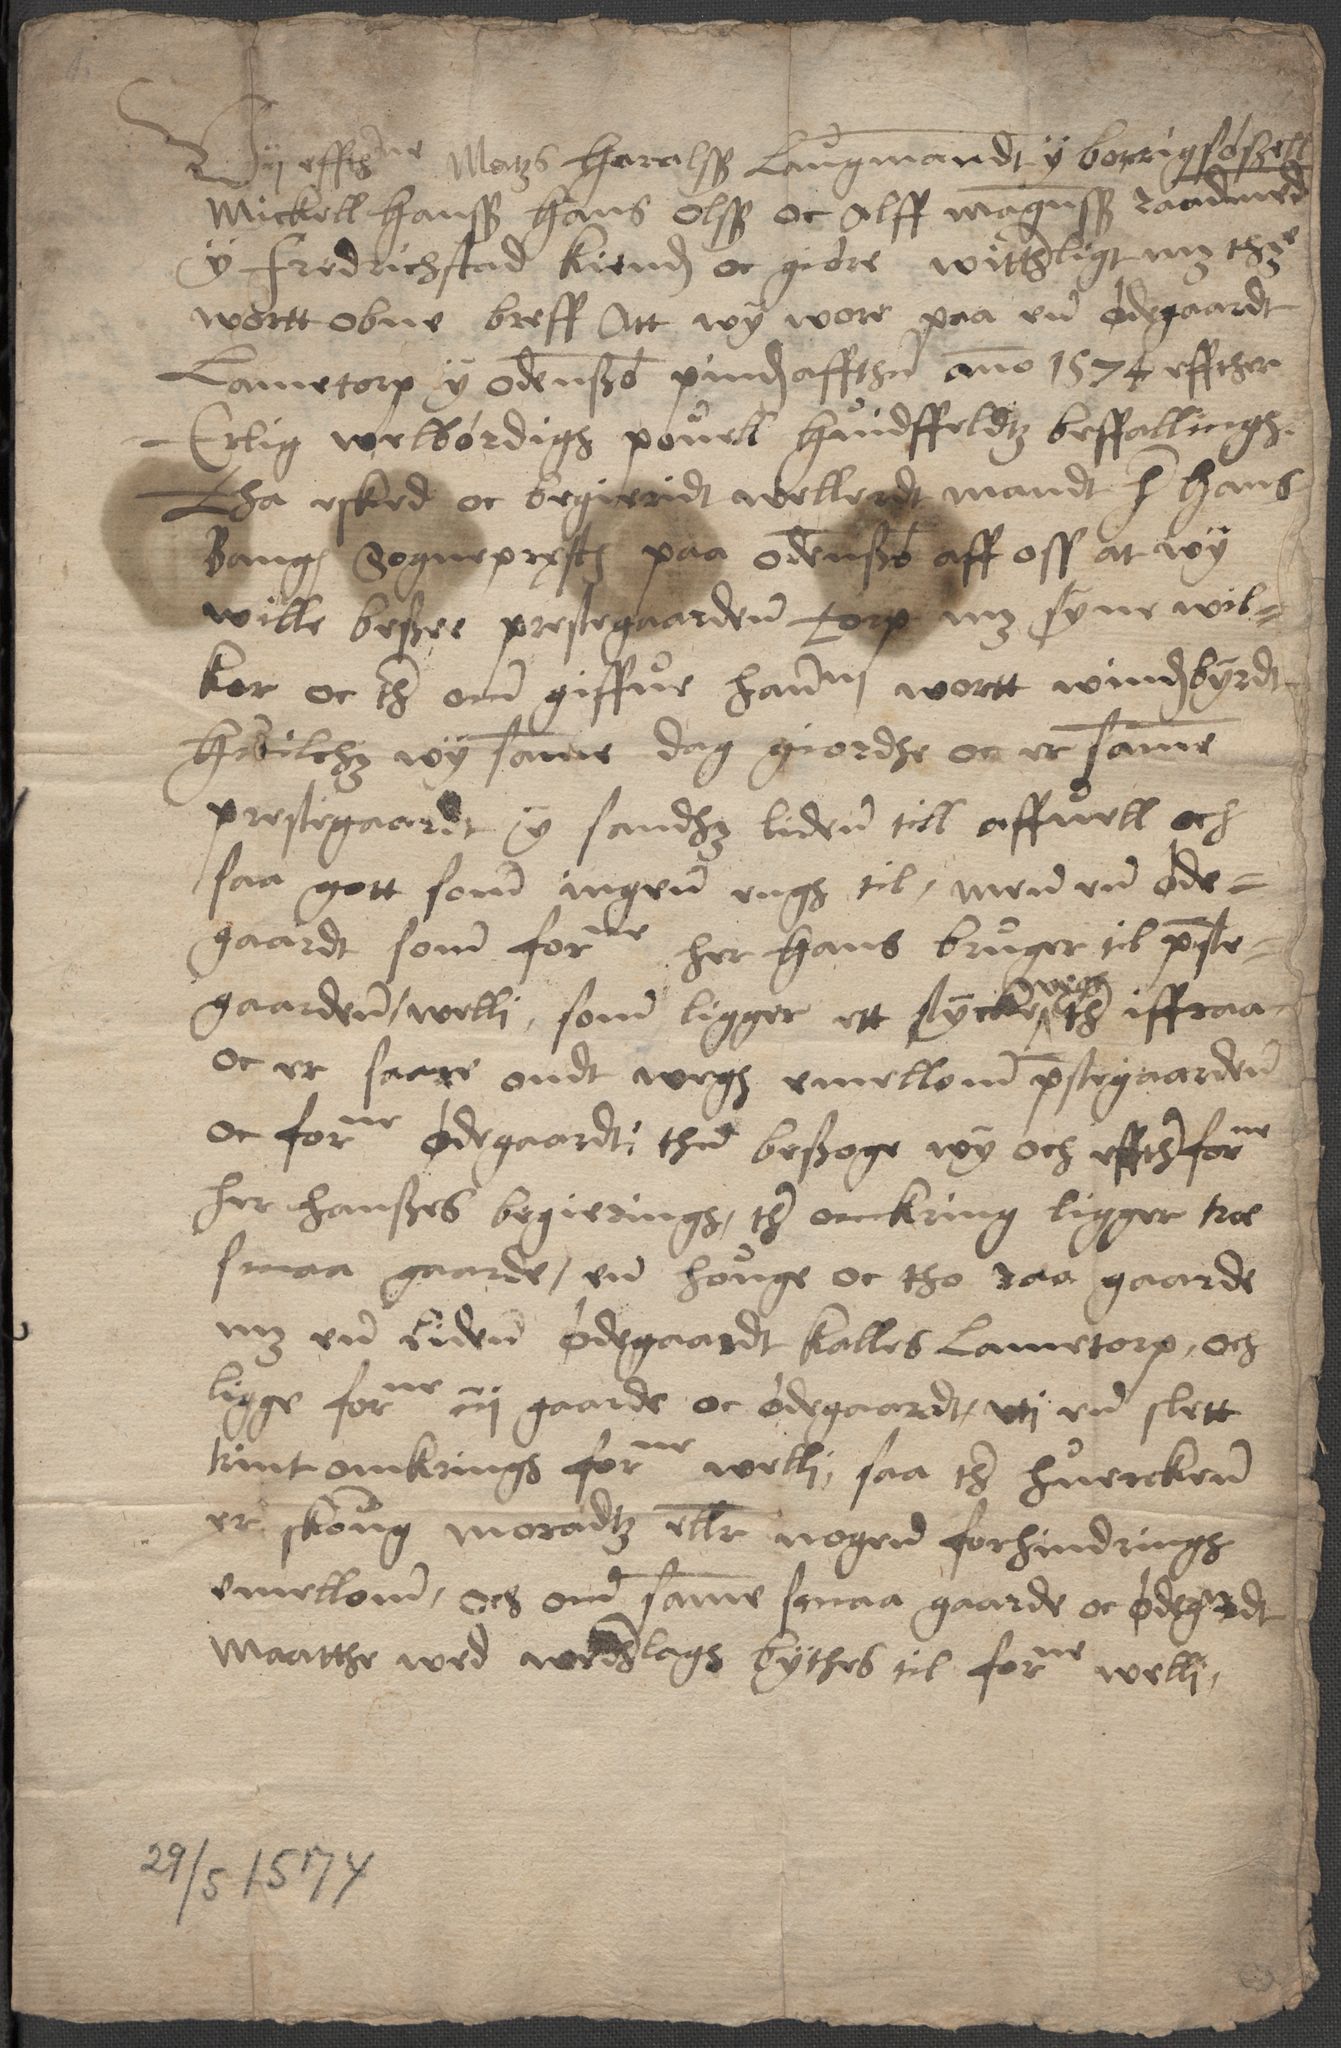 Wij effthne Matzs Haralssß Laugmandt ÿ borrigsøßell
Mickell Hanssß Hans Olssß oc Alff magnussß raadmed
ÿ Fredrichstad kiend oc giøre witthligt mz thze
wortt obne breff Att wÿ wore paa en ødegaardt
Lametorp ÿ Odenssø pindzafften ano 1574 effther
Erlig welbørdigs pouell Huidffeldtz beffallings.
Tha esked oc begieridt wellerdt mandt H Hans
Bang Sognepresth paa Odenssø aff oss at wÿ
wille beßee prestegaarden torp mz syne wil=
kor oc th om giffue hannm wortt windbÿrdt
Huilchz wÿ same dag giordhe oc er same
prestegaardt ÿ sandhz liden till affuell och
saa gott som ingen engs til, men en øde=
gaardt som forne her Hans bruger til pste=
gaarden, welli, som ligger ett stÿcke wegs th iffraa
oc er saare ondt wegs emellom pstegaarden
oc forne ødegaardt; then beßoge wÿ och effth forne
her hanßes begierings, th omkring ligger tre
smaa gaarde, en houge oc tho raa gaarde
mz en liden ødegaardt kalles Lametorp, och
ligge forne iij gaarde oc ødegaardt, uti en slett
trint omkrings forne welli, saa th huercken
er skoug moradtz ellr nogen forhindrings
emellom, och om same smaa gaarde oc ødegrdt
Maatthe wed lags bÿthes til forne welli,
29/5 1574